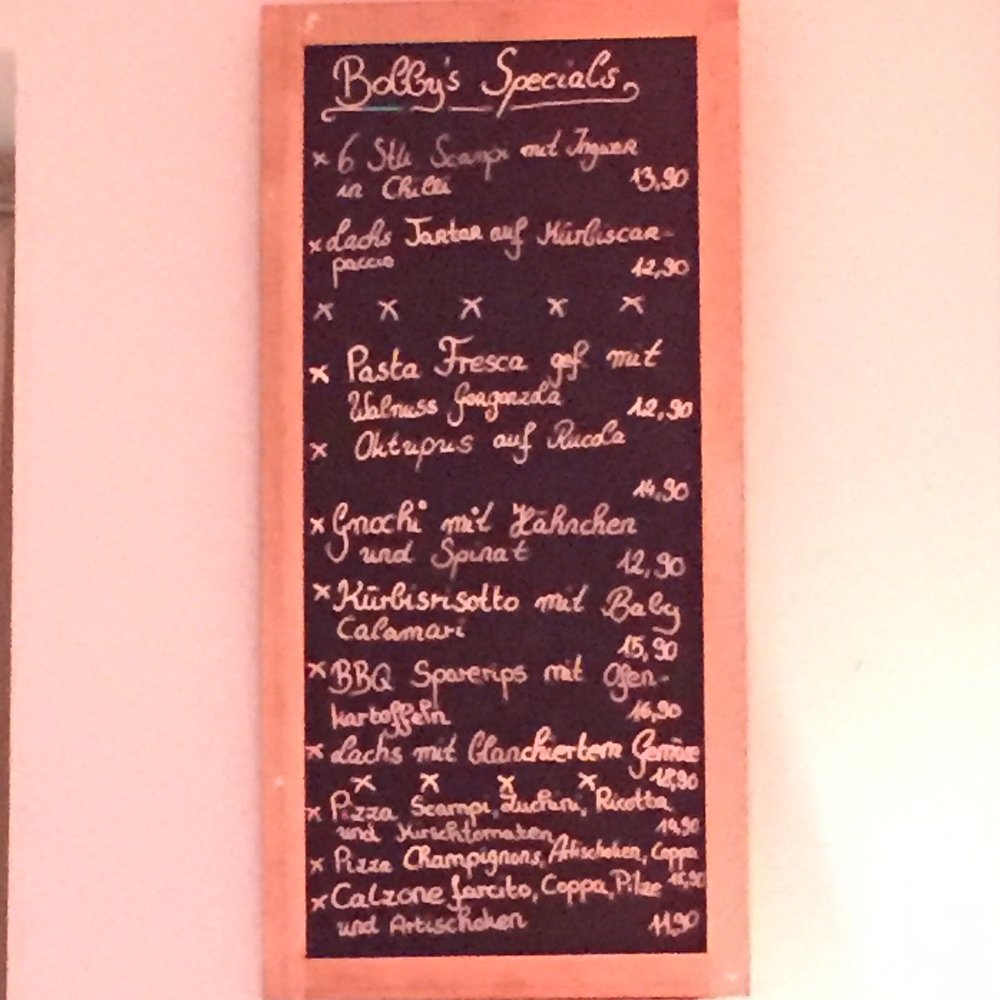 Bobby's Specials
x 6 Stk Scampi mit Ingwer
in Chilli 13,90
x Lachs Tartar auf Kürbiscar-
paccio 12,90
x x x x x
x Pasta Fresca gef mit
Walnuss Gorgonzola 12,90
x Oktupus auf Rucola
14,90
x Gnochi mit Hähnchen
und Spinat 12,90
x Kürbisrisotto mit Baby
Calamari 15,90
x BBQ Sparerips mit Ofen-
kartoffeln 16,90
x Lachs mit blanchiertem Gemüse
18,90
x x x x
x Pizza Scampi, Zuchini, Ricotta
und Kirschtomaten 14,90
x Pizza Champignons, Artischoken, Coppa
x Calzone farcito, Coppa, Pilze
und Artischoken 11,90